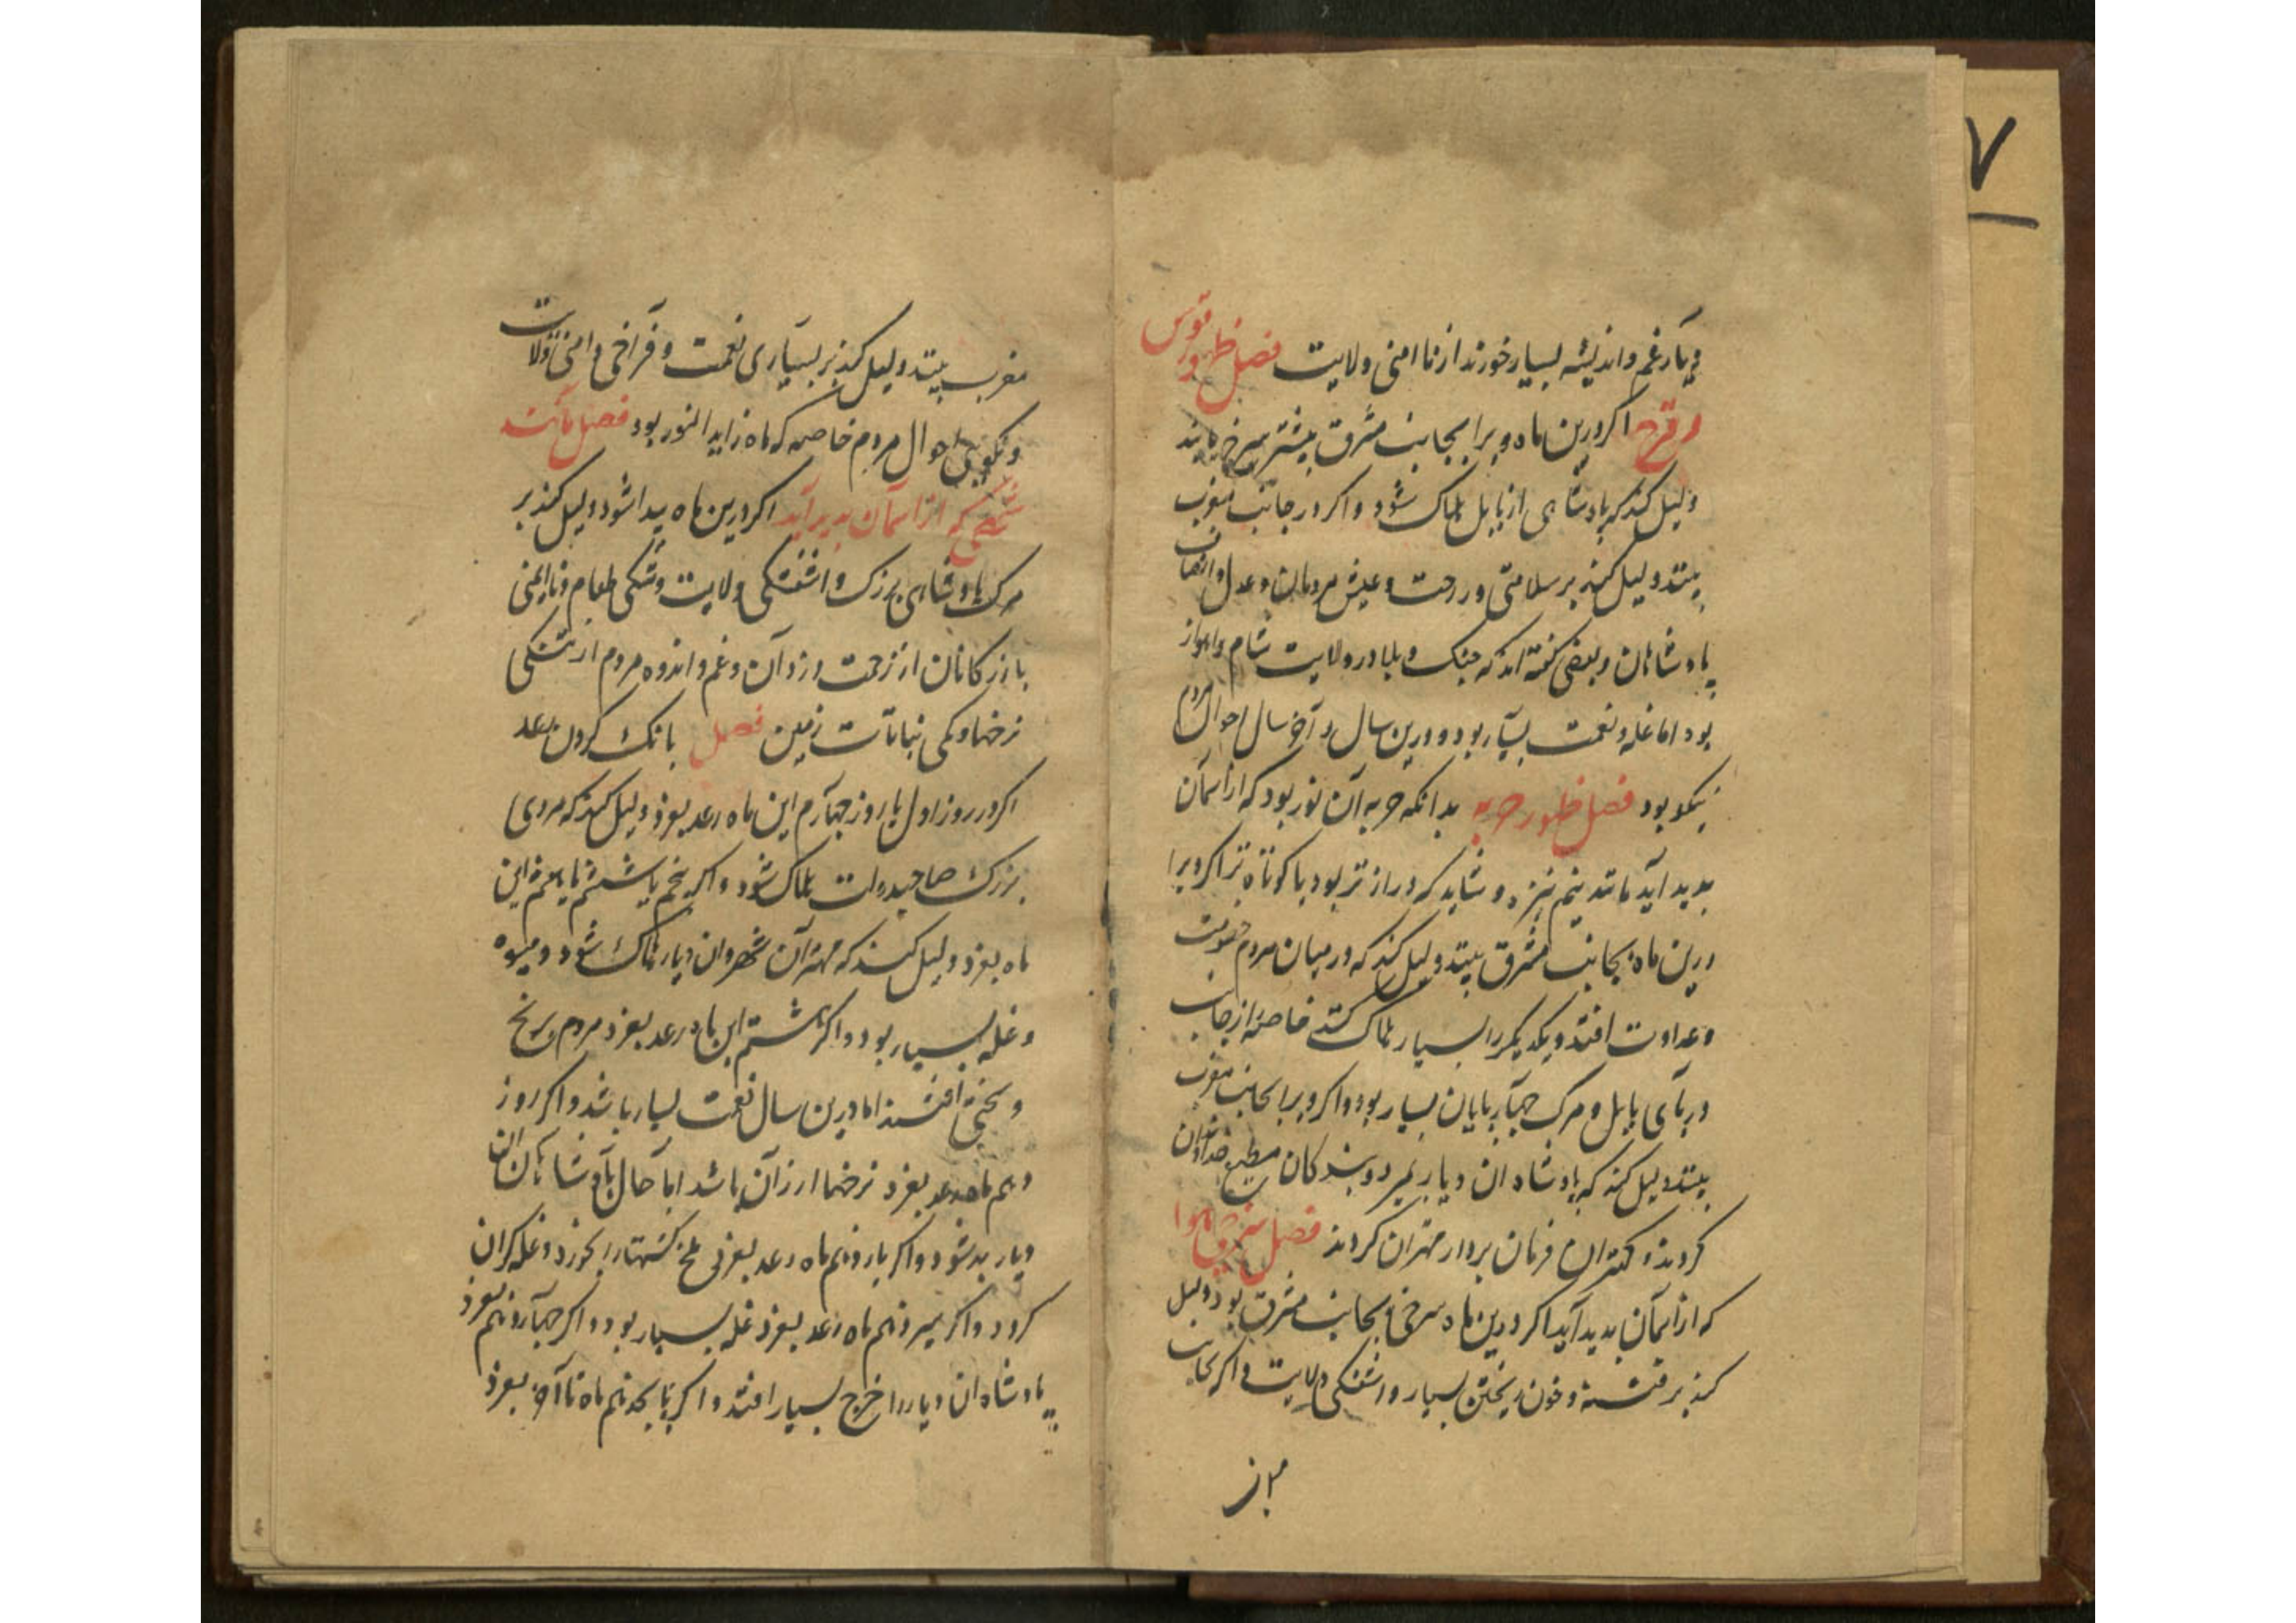 دیار غم و اندیشه بسیار خورند از نا امنی ولایت فصل ظهور قوس
و قزح اکر درین ماه ویرا بجانب مشرق بیشتر سرخ یابند
دلیل کند که پادشاهی از بابل هلاک شود و اکر در جانب مغرب
بیند دلیل کند بر سلامتی و راحت و عیش مردمان و عدل و انصاف
پادشاهان و بعضی کفته اند که جنک و بلا در ولایت شام و اهواز
بود اما غله و نعمت بسیار بود و درین سال و آخر سال احوال مردم
نیکو بود فصل ظهور حربه بدانکه حربه آن نور بود که از آسمان
بدید آید مانند نیم نیزه و شاید که دراز تر بود یا کوتاه تر اکر ویرا
درین ماه بجانب مشرق بیند دلیل کند که در میان مردم خصومت
و عداوت افتد و یکدیکر را بسیار هلاک کنند خاصه از جانب
دریای بابل و مرک چهارپایان بسیار بود و اکر ویرا بجانب مغرب
بیند دلیل کند که پادشاه ان دیار بمیرد و بندکان مطیع خداوندان
کردند و کهتران فرمان بردار مهتران کردند فصل سرخی هوا
که از آسمان بدید آید اکر درین ماه سرخی بجانب مشرق بود دلیل
کند بر فتنه و خون ریختن بسیار و اشفتکی ولایت و اکر بجانب
مغرب بیند دلیل کند بر بسیاری نعمت و فراخی و امنی ولایت
و نکویی احوال مردم خاصه که ماه زاید النور بود فصل
که از آسمان بدید آید اکر درین ماه پیدا شود دلیل کند بر
مرک پادشاهی بزرک و اشفتکی ولایت و تنکی طعام و نا ایمنی
بازرکانان از زحمت دزدان و غم و اندوه مردم از تنکی
نرخها و کمی نباتات زمین فصل بانک کردن رعد
اکر در روز اول یا روز چهارم این ماه رعد بغرد دلیل کند که مردی
بزرک صاحبدولت هلاک شود و اکر پنجم یا ششم یا هفتم این
ماه بغرد دلیل کند که مهتران شهر و ان دیار هلاک شود و میوه
و غله بسیار بود و اکر هشتم این ماه رعد بغرد مردم برنج
و سختی افتند اما درین سال نعمت بسیار باشد و اکر روز
دهم ماه رعد بغرد نرخها ارزان باشد اما حال پادشاهان ان
دیار بد شود و اکر یازدهم ماه رعد بغرد ملخ کشتها را بخورد و غله کران
کردد و اکر سیزدهم ماه رعد بغرد غله بسیار بود و اکر چهاردهم بغرد
پادشاه ان دیار را خرج بسیار افتد و اکر پانجدهم ماه تا آخر بغرد